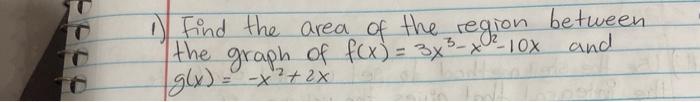 1) Find the area of the region between
the graph of f(x) = 3x³-x²-10x and
g(x) = -x²+2x